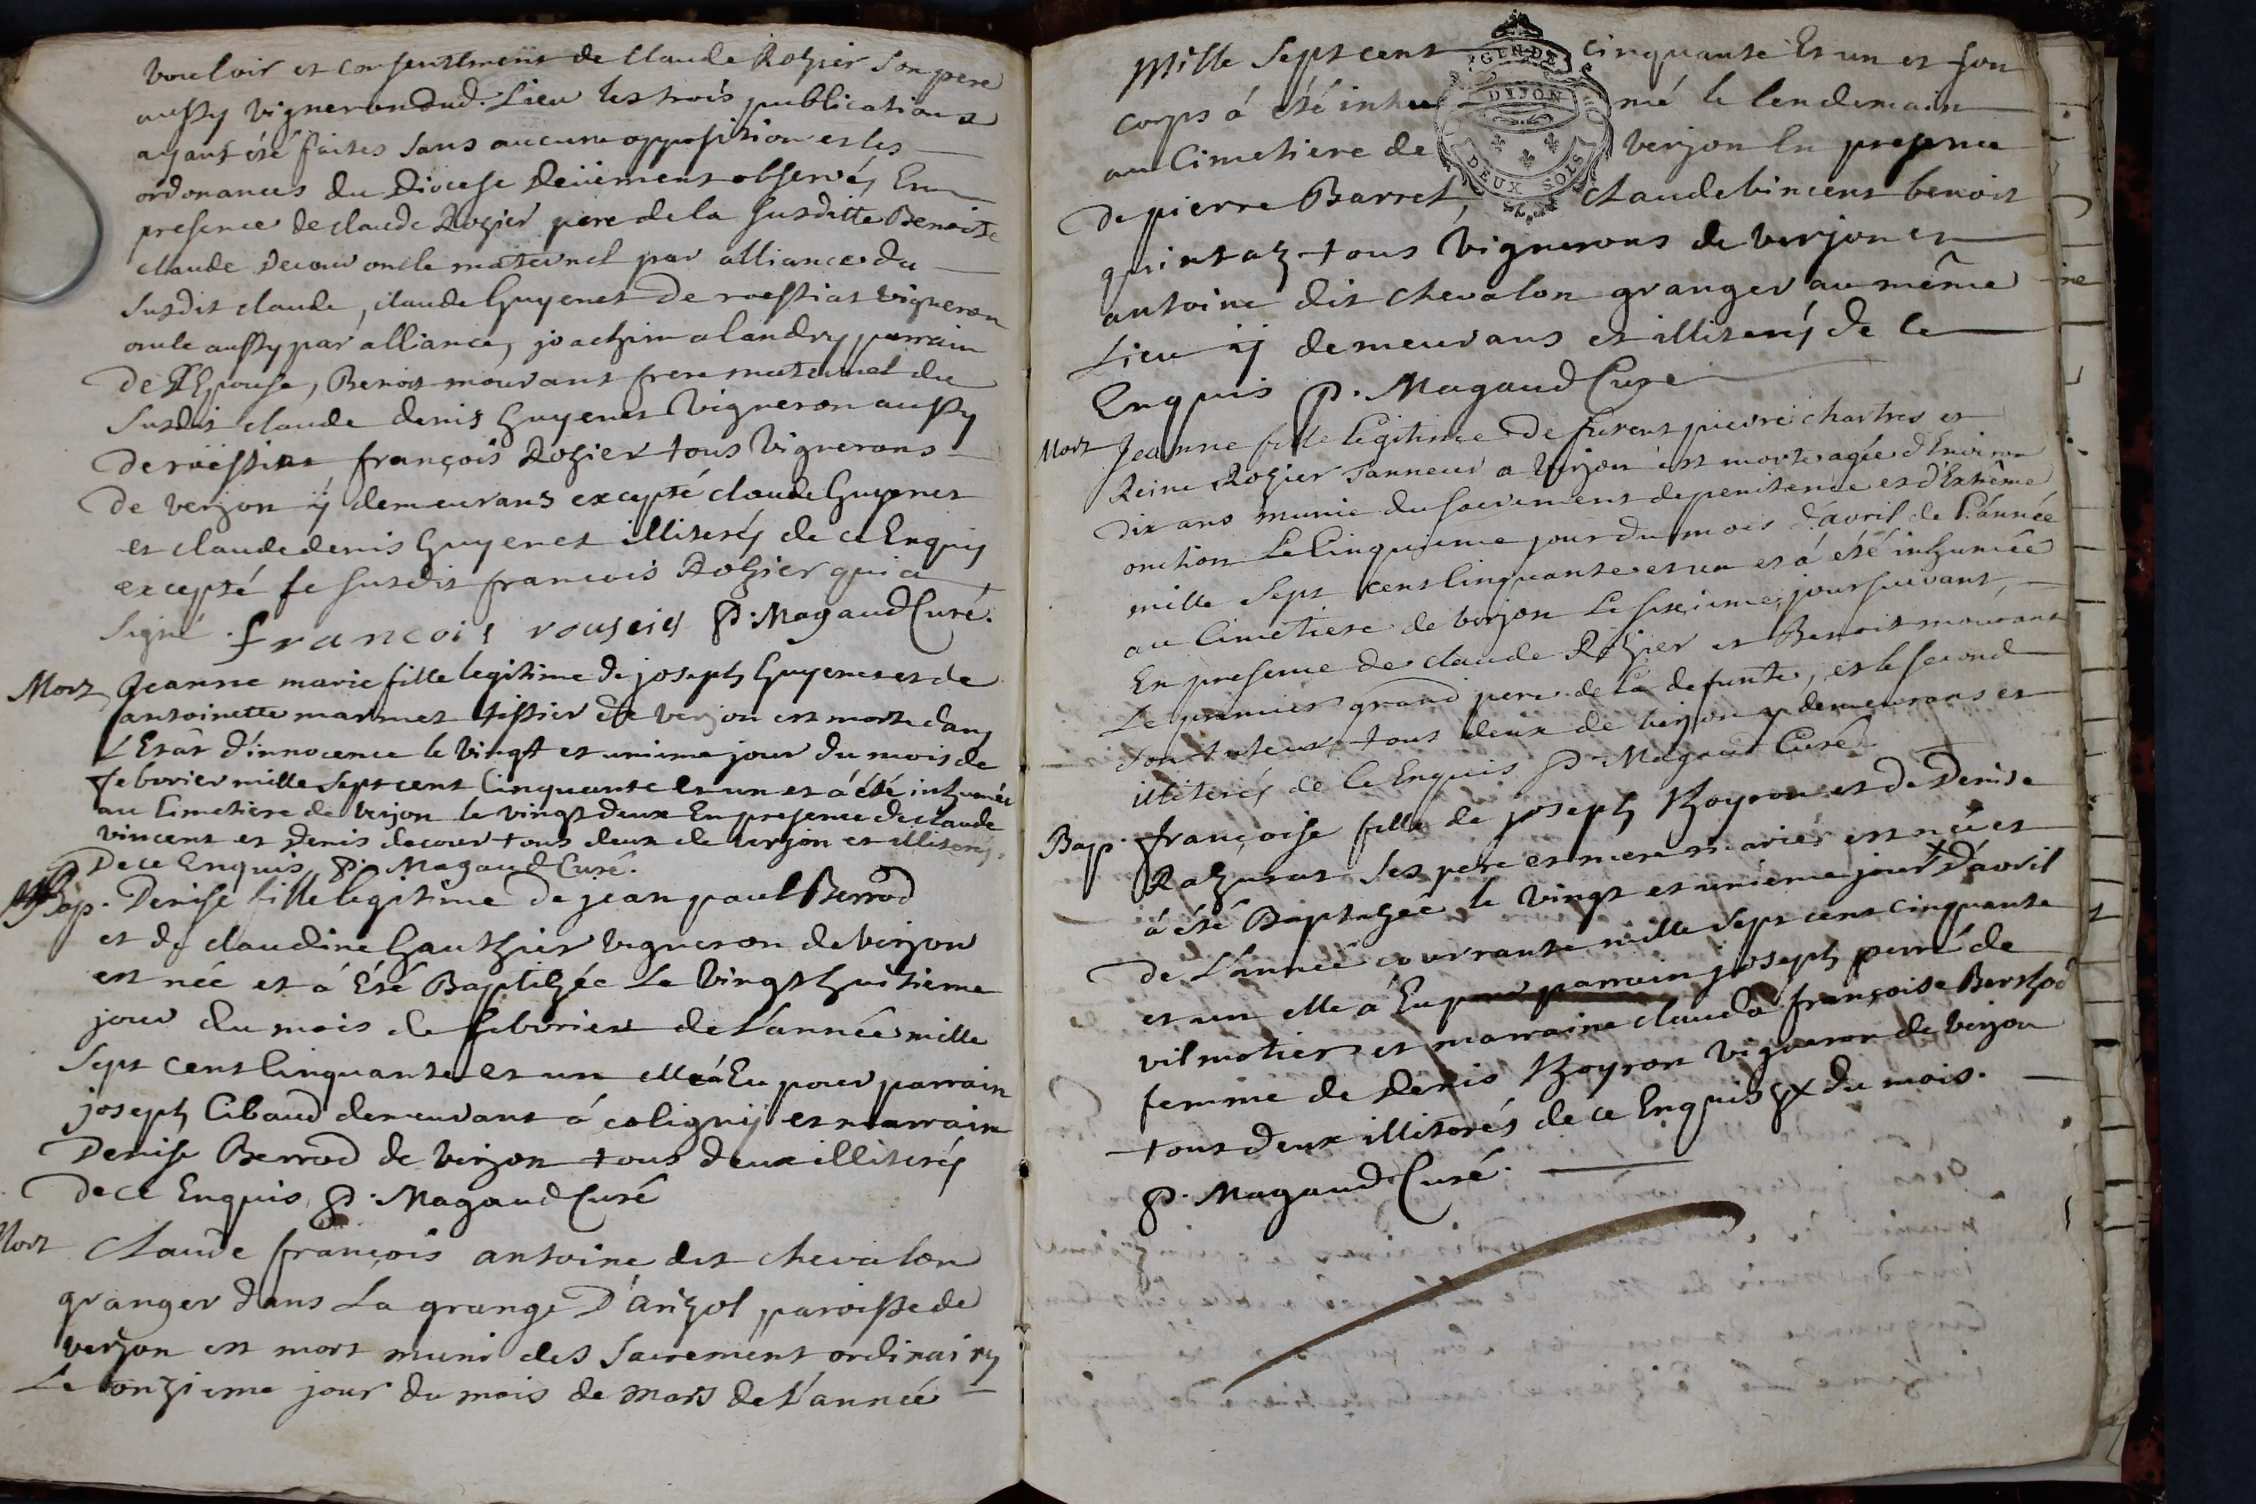 vouloir et consentement de claude Rozier son pere
aussy vigneron dud. Lieu les trois publications
ayant été faites sans aucune opposition et les
ordonances du Diocese deüement observés En
presence de claude Rozier pere de la susditte Benoite
claude decour oncle maternel par alliance du
susdit claude, claude Guyenet De roessiat vigneron
oncle aussy par alliance, joachim alandry parrain
de L'Epouse, Benoit mourant frere maternel du
susdit claude denis Guyenet vigneron aussy
de roëssiat françois Rozier tous vignerons
de verjon ÿ demeurans excepté claude Guyenet
et claude denis Guyenet illiterés de ce Enquis
excepté le susdit francois Rozier qui a
signé. francois rousies P. Magaud Curé.
Mort Jeanne marie fille legitime de joseph Guyenet et de
antoinette marmet tissier de verjon est morte dans
L'Etat d'innocence le vingt et unieme jour du mois de
febvrier mille sept cent Cinquante et un et á été inhumée
au Cimetiere de verjon le vingt deux En presence de claude
vincent et Denis decour tous deux de verjon et illiterés
De ce Enquis P. Magaud Curé.
Bap. Denise fille legitime de jean paul Berrod
et de claudine Gauthier vigneron de verjon
est née et á Eté Baptizée Le vingt huitieme
jour du mois de febvrier de L'année mille
sept cent Cinquante et un elle á Eu pour parrain
joseph Cibaud demeurant á coligny et marrain
Denise Berrod de verjon tous deux illiterés
De ce Enquis P. Magaud Curé
Mort Claude françois antoine dit chevalon
granger dans La grange D'arizol, paroisse de
verjon est mort muni des sacrement ordinaires
Le onzieme jour du mois de mars de L'année
Mille sept cent cinquante Et un et son
corps á été inhumé le lendemain
au Cimetiere de verjon En presence
De pierre Barret, claude vincent benoit
quintaz tous vignerons de verjon et
antoine dit chevalon granger au même
Lieu ÿ demeurans et illiterés de ce
Enquis P. Magaud Curé
GEN.DE
DIJON
DEUX SOLS
Mort Jeanne fille legitime De furent pierre chartres et
Reine Rozier Tanneur a verjon est morte agée d'Environ
dix ans munie du sacrement de penitence et d'Extrême
onction Le Cinquieme jour du mois d'avril de L'année
mille sept cent Cinquante et un et á été inhumée
au Cimetiere de verjon Le sixieme jour suivant,
En presence de claude Rozier et Benoit mourant
Le premier grand pere de la defunte, et le second
son tuteur, tous deux de verjon y demeurans et
illiterés de ce Enquis P. Magaud Curé
Bap. françoise fille de joseph Royron et de Denise
Razurat ses pere et mere mariés est née et
á été Baptizée le vingt et unieme jour x d'avril
de L'année courrante mille sept cent cinquante
et un elle á Eu pour parrain joseph perré de
vilmotier et marraine clauda françoise Berthod
femme de denis Royron vigneron de verjon
tous deux illiterés de ce Enquis x du mois.
P. Magaud Curé.